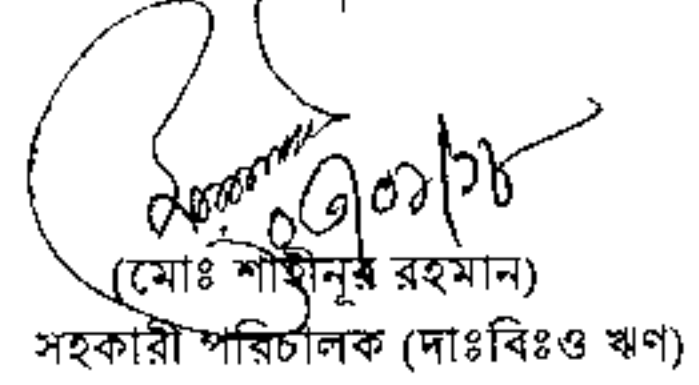 (মোঃ শাহীনূর রহমান)
সহকারী পরিচালক (দাঃবিঃও ঋণ)